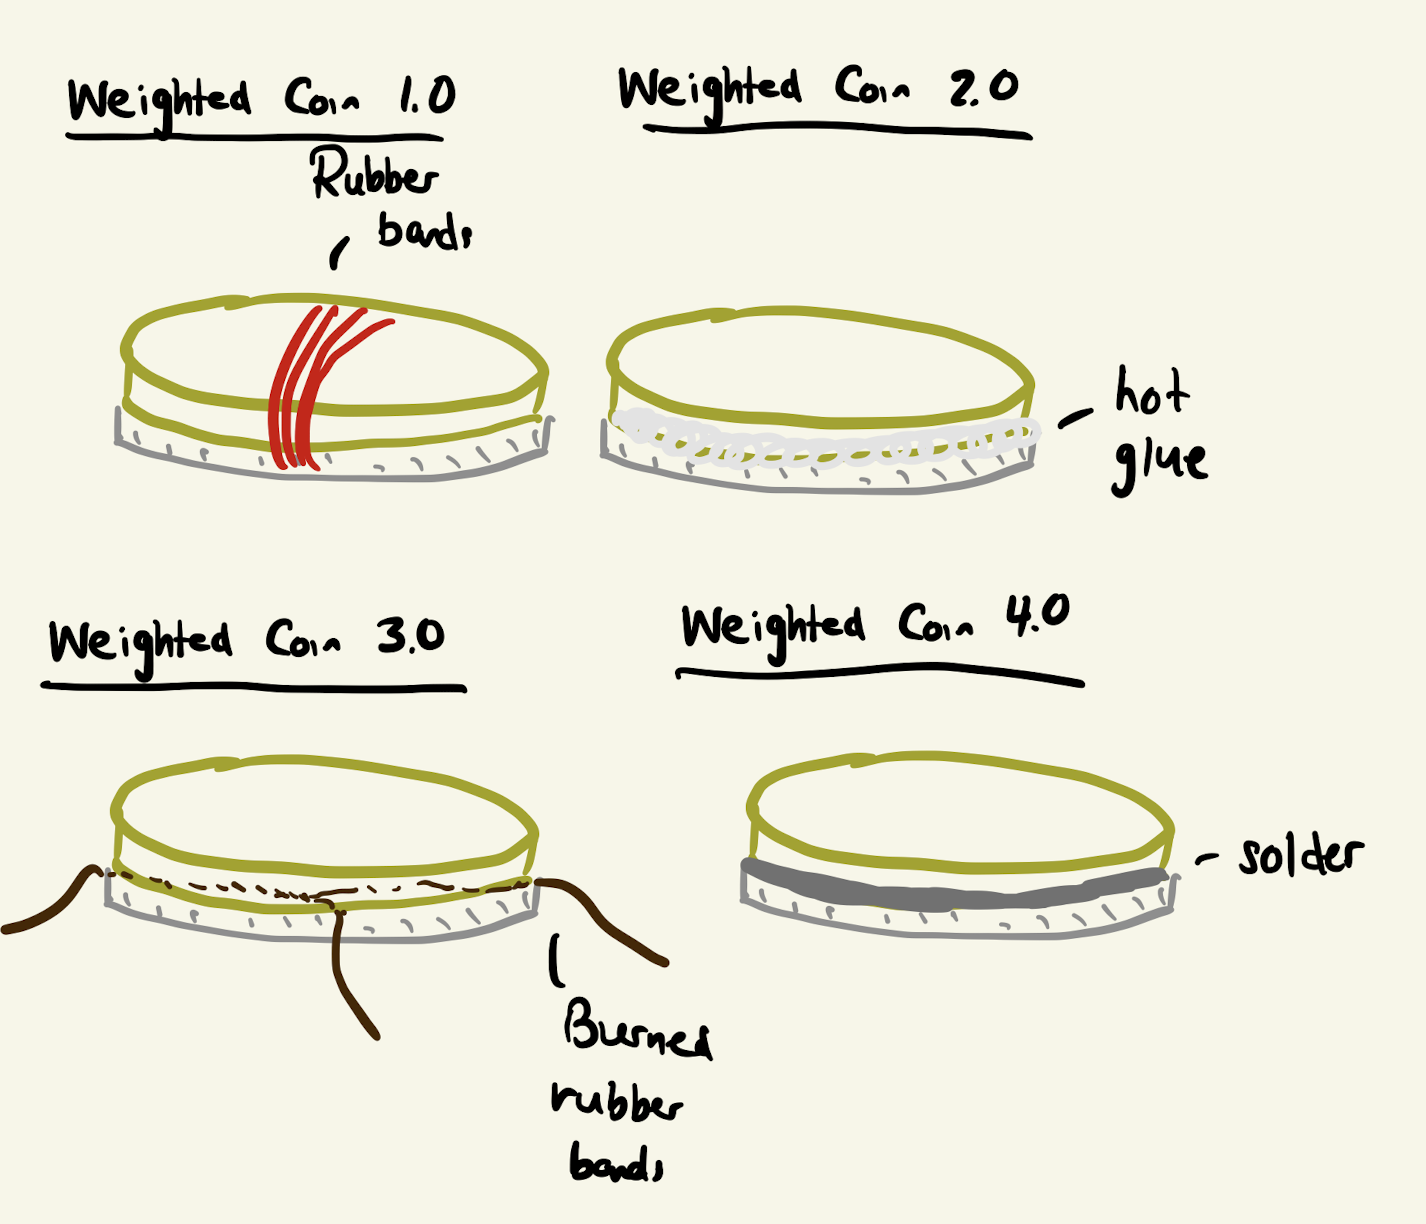 Weighted Coin 1.0
Rubber
bands
Weighted Coin 2.0
hot
glue
Weighted Coin 3.0
Burned
rubber
bands
Weighted Coin 4.0
solder